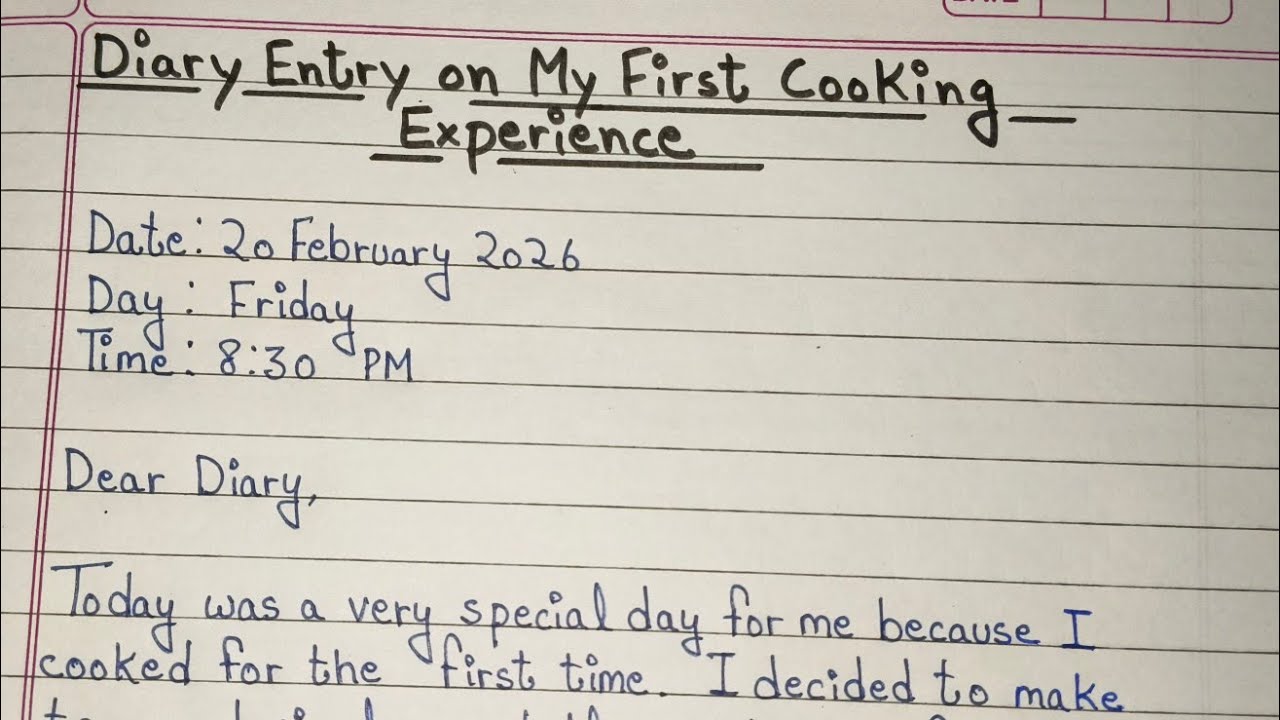 Diary Entry on My First Cooking
Experience
Date: 20 February 2026
Day: Friday
Time: 8:30 PM
Dear Diary,
Today was a very special day for me because I
cooked for the first time. I decided to make